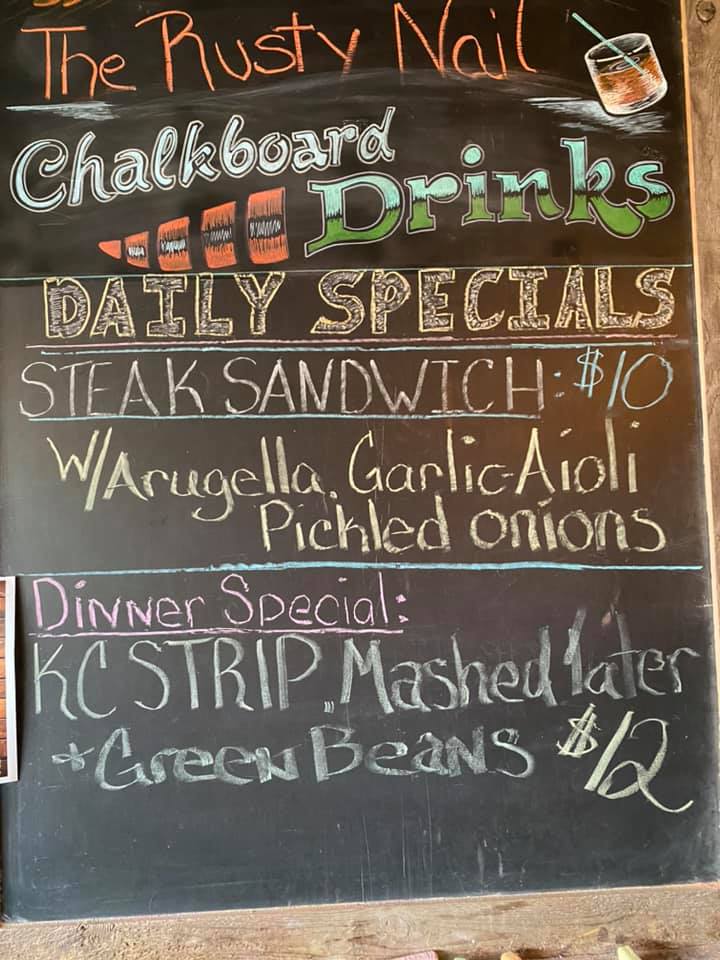 The Rusty Nail
Chalkboard
Drinks
DAILY SPECIALS
STEAK SANDWICH: $10
W/Arugella, Garlic-Aioli
Pickled onions
Dinner Special:
KC STRIP,,, Mashed 'tater
+ Green Beans $12